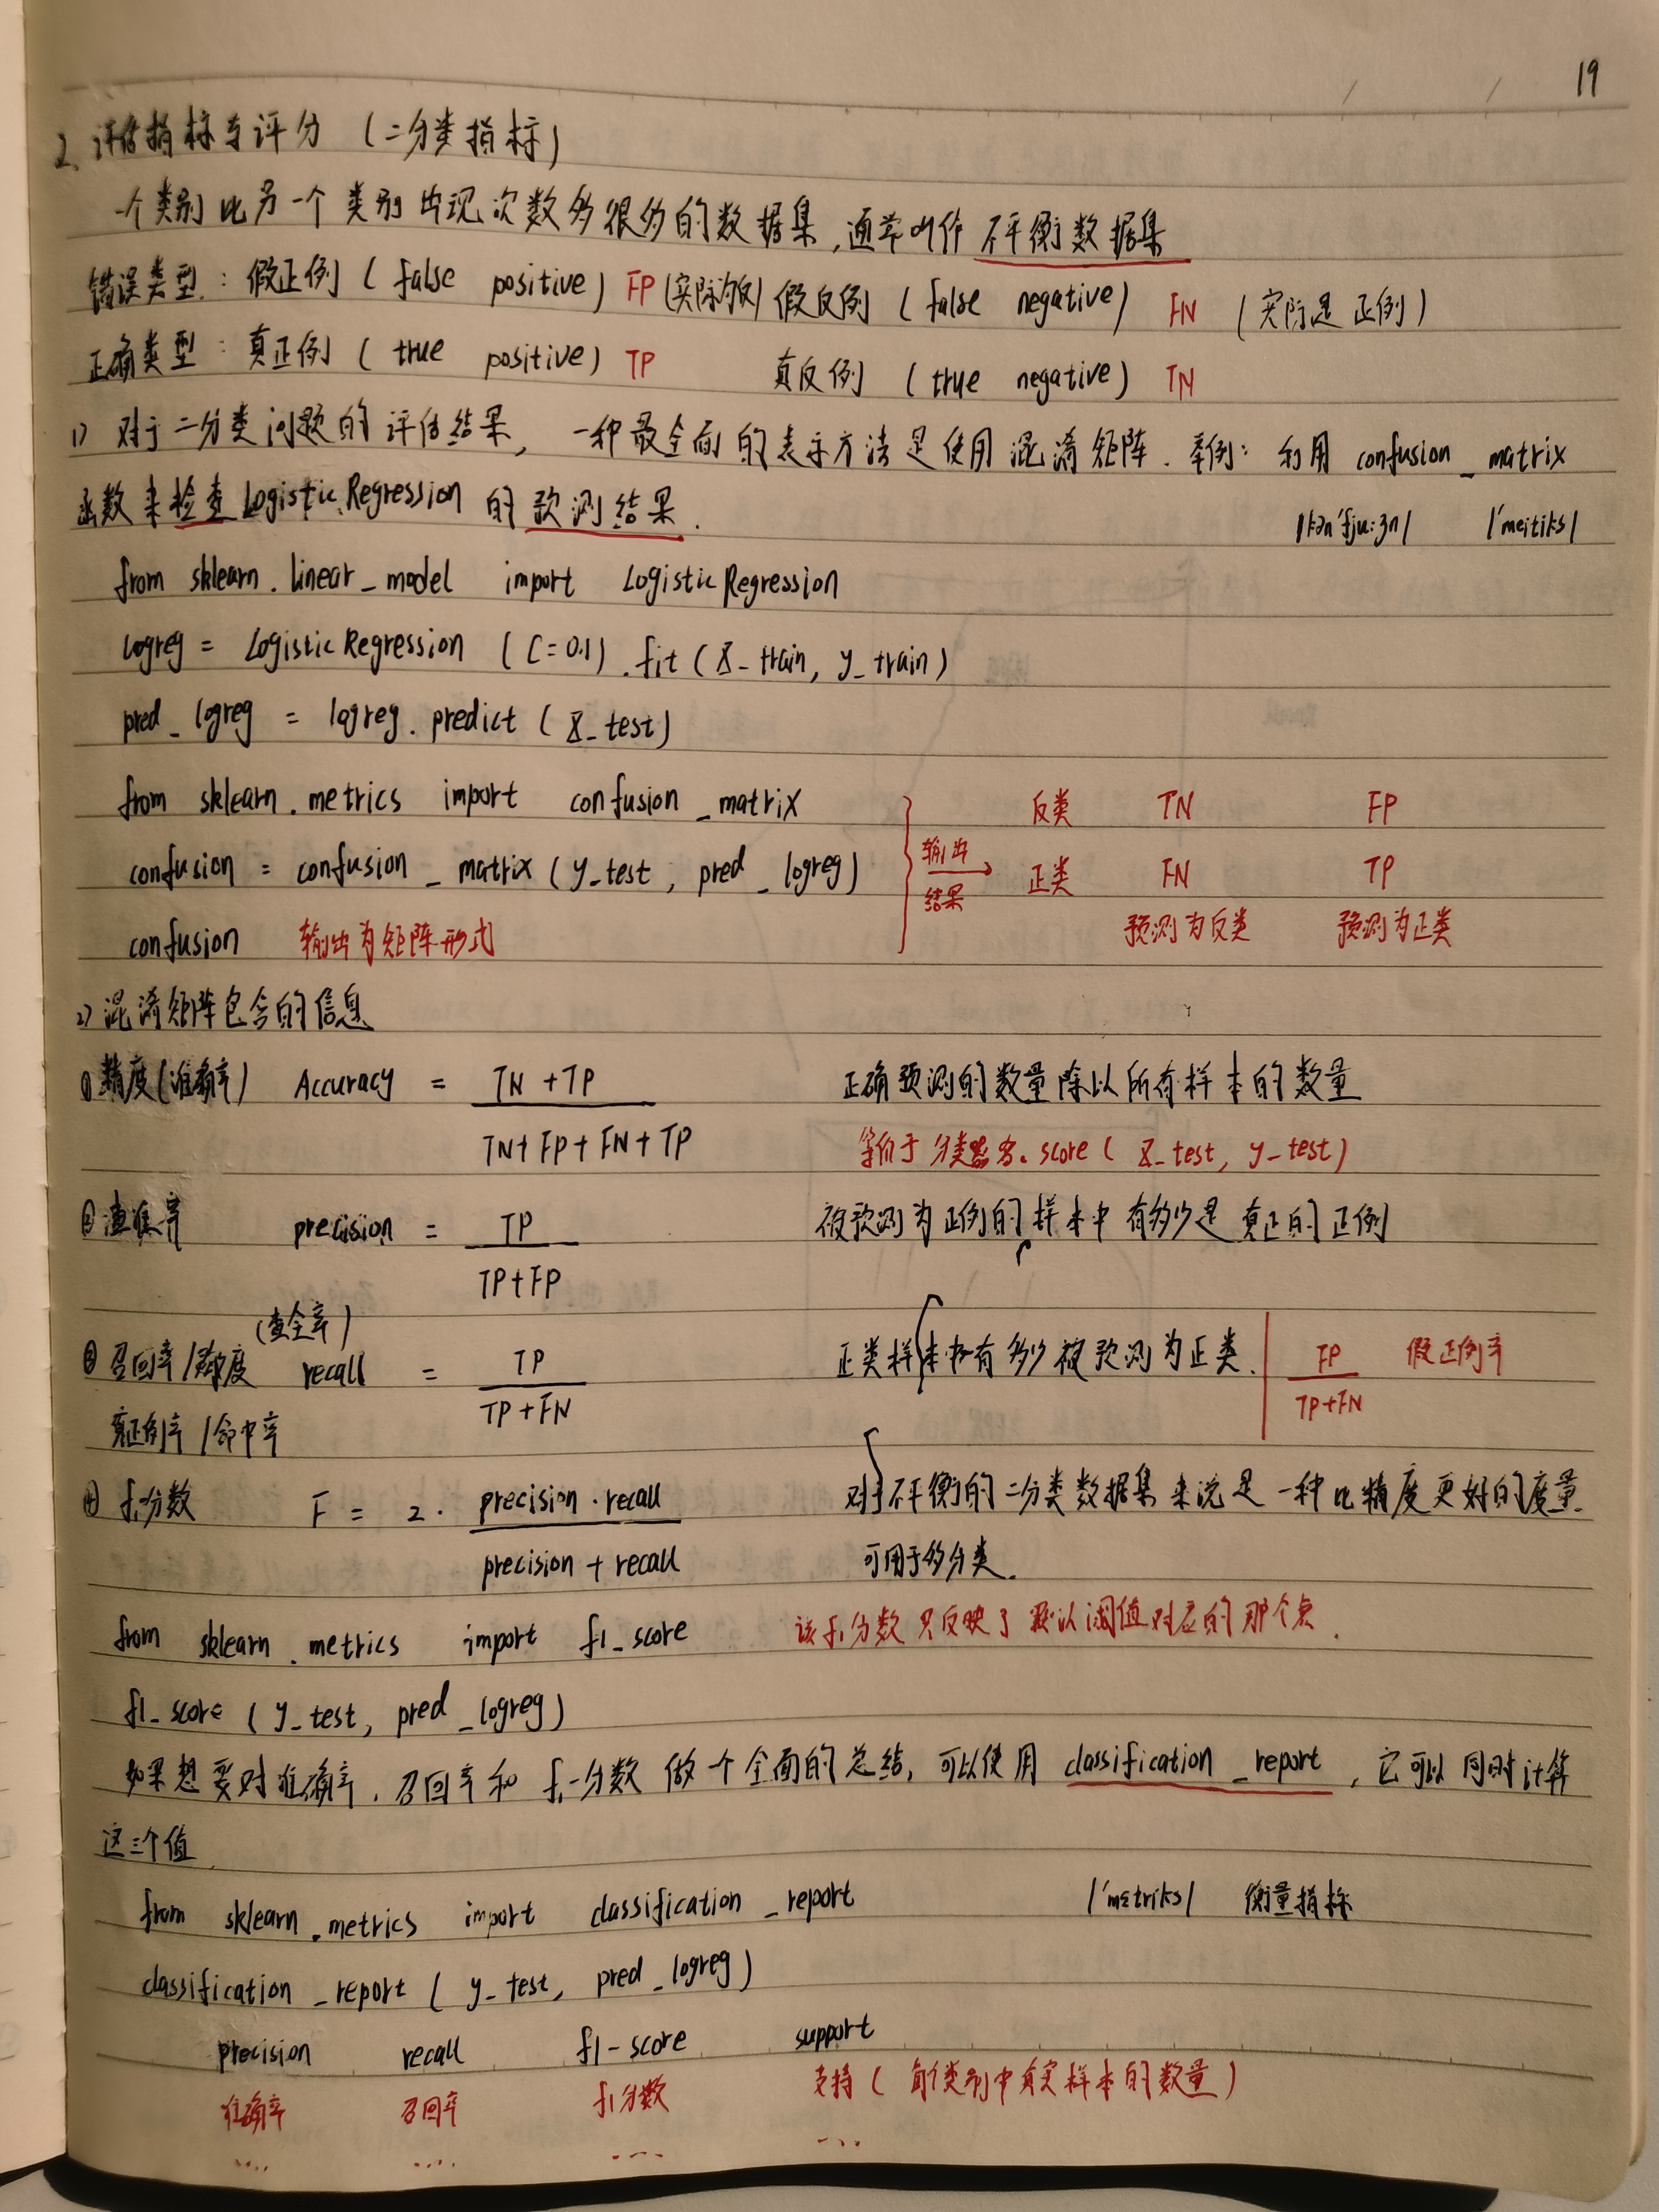 19
2. 评估指标与评分 (二分类指标)
一个类别比另一个类别出现次数多很多的数据集,通常叫作 不平衡数据集
错误类型: 假正例 (false positive) FP (实际为反) 假反例 (false negative) FN (实际是正例)
正确类型: 真正例 (true positive) TP 真反例 (true negative) TN
1) 对于二分类问题的评估结果, 一种最全面的表示方法是使用混淆矩阵. 举例: 利用 confusion_matrix
函数来检查LogisticRegression 的预测结果. |kən'fju:ʒn| |'meitiks|
from sklearn.linear_model import LogisticRegression
logreg = LogisticRegression (C=0.1).fit (X_train, y_train)
pred_logreg = logreg.predict (X_test)
from sklearn.metrics import confusion_matrix 反类 TN FP
confusion = confusion_matrix (y_test, pred_logreg) 输出结果 正类 FN TP
confusion 输出为矩阵形式 预测为反类 预测为正类
2) 混淆矩阵包含的信息
① 精度(准确率) Accuracy = TN+TP / TN+FP+FN+TP 正确预测的数量除以所有样本的数量
等价于 分类器名.score (X_test, y_test)
② 查准率 precision = TP / TP+FP 被预测为正例的样本中有多少是真正的正例
(查全率)
③ 召回率/灵敏度 recall = TP / TP+FN 正类样本中有多少被预测为正类. FP / TP+FN 假正例率
真正例率/命中率
④ f₁分数 F = 2 · precision · recall / precision + recall 对于不平衡的二分类数据集来说是一种比精度更好的度量.
可用于多分类.
from sklearn.metrics import f1_score 该f₁分数只反映了默认阈值对应的那个点.
f1_score (y_test, pred_logreg)
如果想要对准确率、召回率和 f₁-分数 做个全面的总结, 可以使用 classification_report, 它可以同时计算
这三个值
from sklearn.metrics import classification_report |'metriks| 衡量指标
classification_report (y_test, pred_logreg)
precision recall f1-score support
准确率 召回率 f₁分数 支持 (每个类别中真实样本的数量)